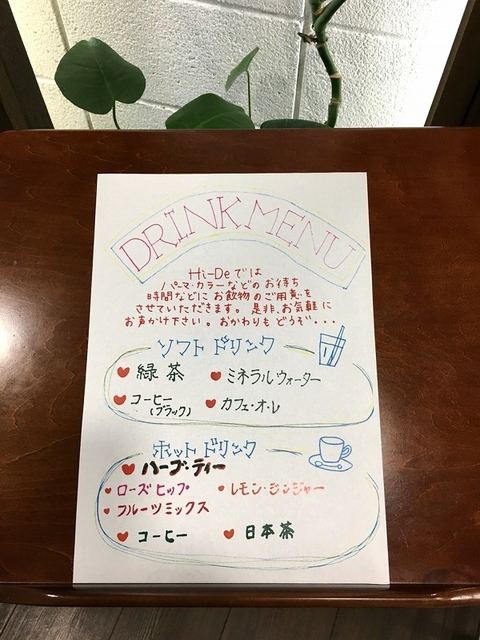 DRINK MENU
Hi-Deでは
パーマ・カラーなどの お待ち
時間などに お飲物のご用意を
させていただきます。是非、お気軽に
お声かけ下さい。おかわりもどうぞ・・・
ソフト ドリンク
緑茶 ミネラルウォーター
コーヒー(ブラック) カフェ・オ・レ
ホット ドリンク
ハーブ・ティー
ローズヒップ レモン・ジンジャー
フルーツミックス
コーヒー 日本茶